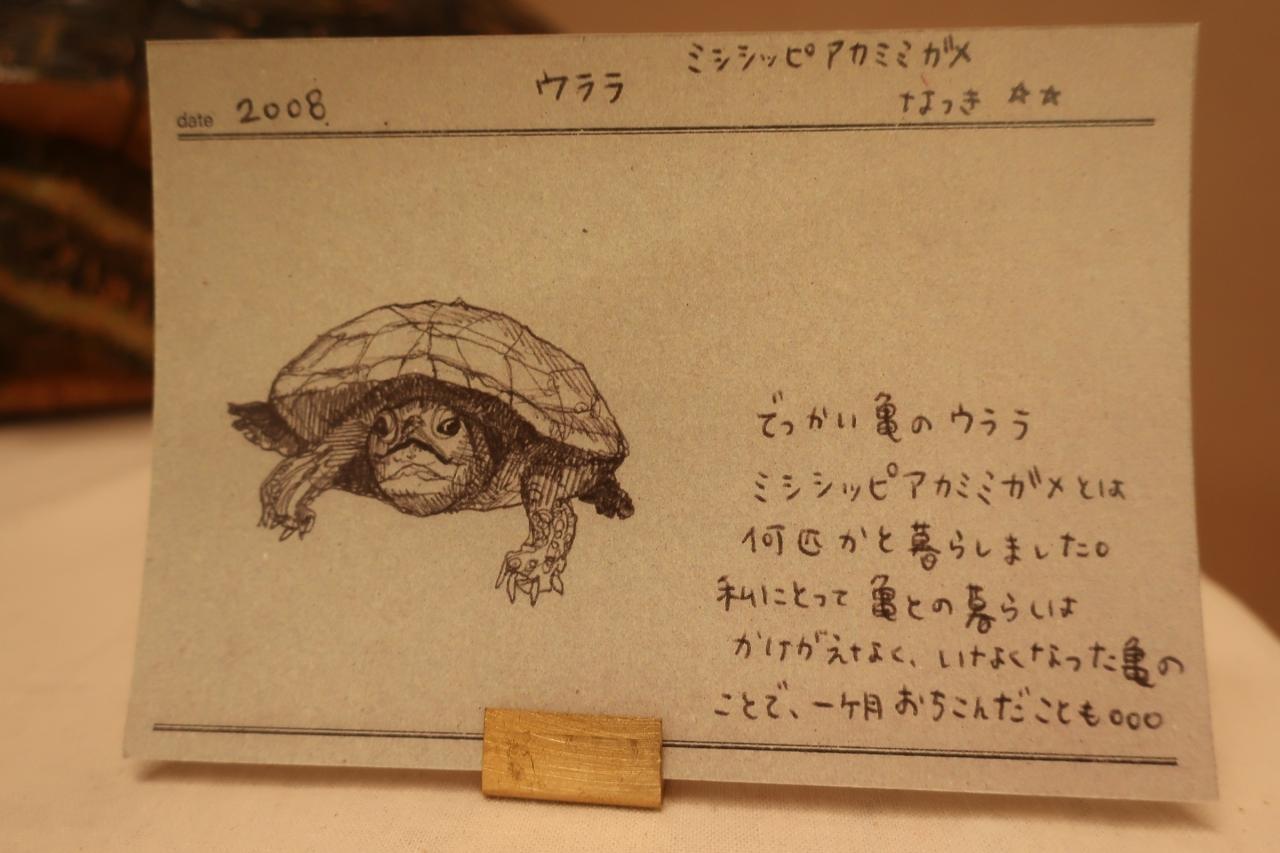 ミシシッピアカミミガメ
date 2008 ウララ
なつき ☆☆
でっかい亀のウララ
ミシシッピアカミミガメとは
何匹かと暮らしました。
私にとって亀との暮らしは
かけがえなく、いなくなった亀の
ことで、一ケ月おちこんだことも。。。